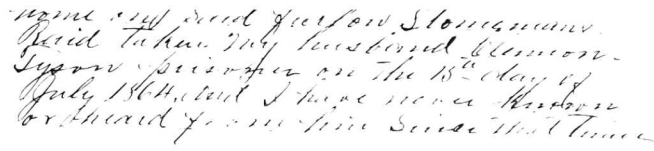 name and said furlow Stonemans
Raid taken my husband
Tyson prisoner on the 15th day of
July 1864, and I have never Known
or heard from him since that time